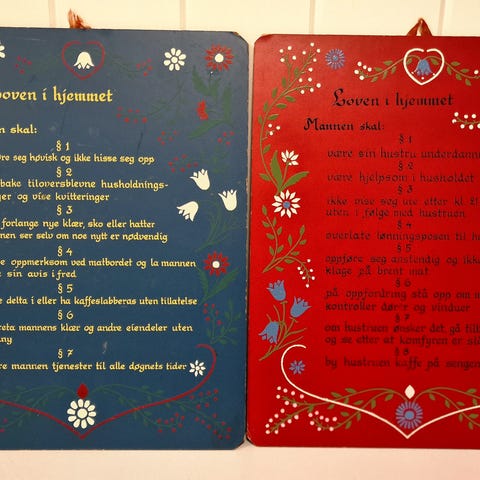 Loven i hjemmet
skal:
§ 1
seg høvisk og ikke hisse seg opp
§ 2
tiloversblevne husholdnings-
og vise kvitteringer
§ 3
forlange nye klær, sko eller hatter
ser selv om noe nytt er nødvendig
§ 4
oppmerksom ved matbordet og la mannen
sin avis i fred
§ 5
delta i eller ha kaffeslabberas uten tillatelse
§ 6
mannens klær og andre eiendeler uten
§ 7
mannen tjenester til alle døgnets tider
Loven i hjemmet
Mannen skal:
§ 1
være sin hustru
§ 2
være hjelpsom i husholdet
§ 3
ikke vise seg ute etter kl.
uten i følge med hustruen
§ 4
overlate lønningsposen til
§ 5
oppføre seg anstendig og
klage på brent mat
§ 6
på oppfordring stå opp om
kontroller dører og vinduer
§ 7
om hustruen ønsker det, gå
og se etter at komfyren er
§ 8
by hustruen kaffe på